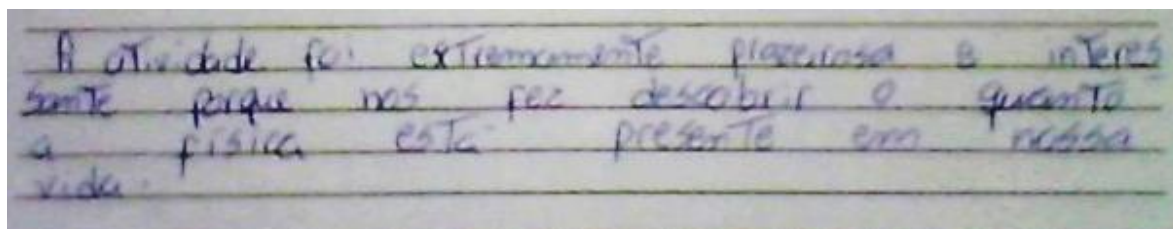 A atividade foi extremamente prazeirosa e interes
sante porque nos fez descobrir o quanto
a física está presente em nossa
vida.